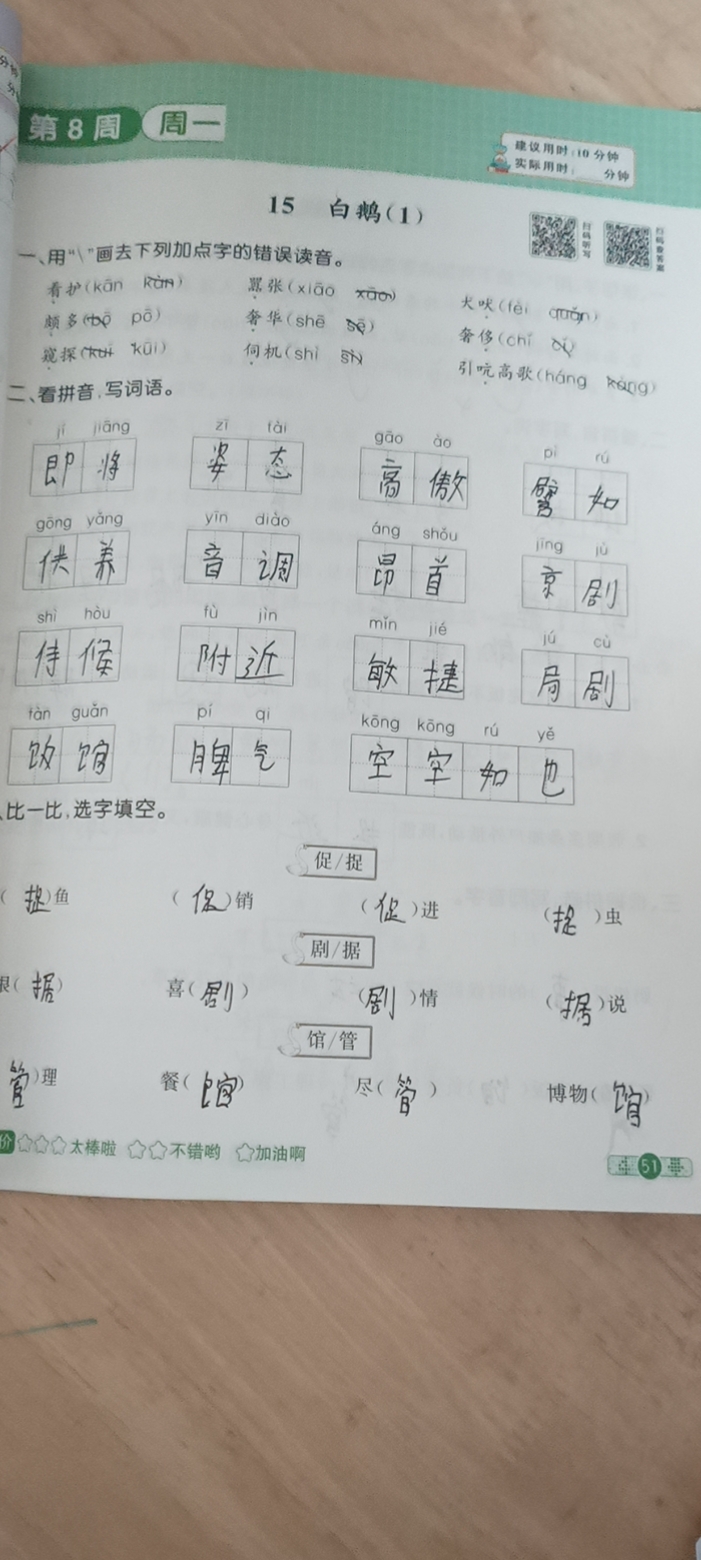 第8周 周一
建议用时:10分钟
实际用时:____分钟
15 白鹅(1)
扫码听写
扫码查答案
一、用“\”画去下列加点字的错误读音。
看护(kān kàn) 嚣张(xiāo xāo) 犬吠(fèi quǎn)
颇多(bō pō) 奢华(shē sē) 奢侈(chǐ cǐ)
窥探(kuī kūi) 伺机(shì sì) 引吭高歌(háng káng)
二、看拼音,写词语。
jí jiāng zī tài gāo ào pì rú
即将 姿态 高傲 譬如
gōng yǎng yīn diào áng shǒu jīng jù
供养 音调 昂首 京剧
shì hòu fù jìn mǐn jié jú cù
侍候 附近 敏捷 局剧
fàn guǎn pí qi kōng kōng rú yě
饭馆 脾气 空空如也
、比一比,选字填空。
促/捉
(捉)鱼 (促)销 (促)进 (捉)虫
剧/据
根(据) 喜(剧) (剧)情 (据)说
馆/管
管)理 餐(馆) 尽(管) 博物(馆)
价 ☆☆☆太棒啦 ☆☆不错哟 ☆加油啊
51